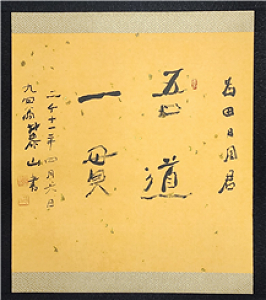 為田日周君
吾道
一貫
二千十一年四月六日
九四翁 山書